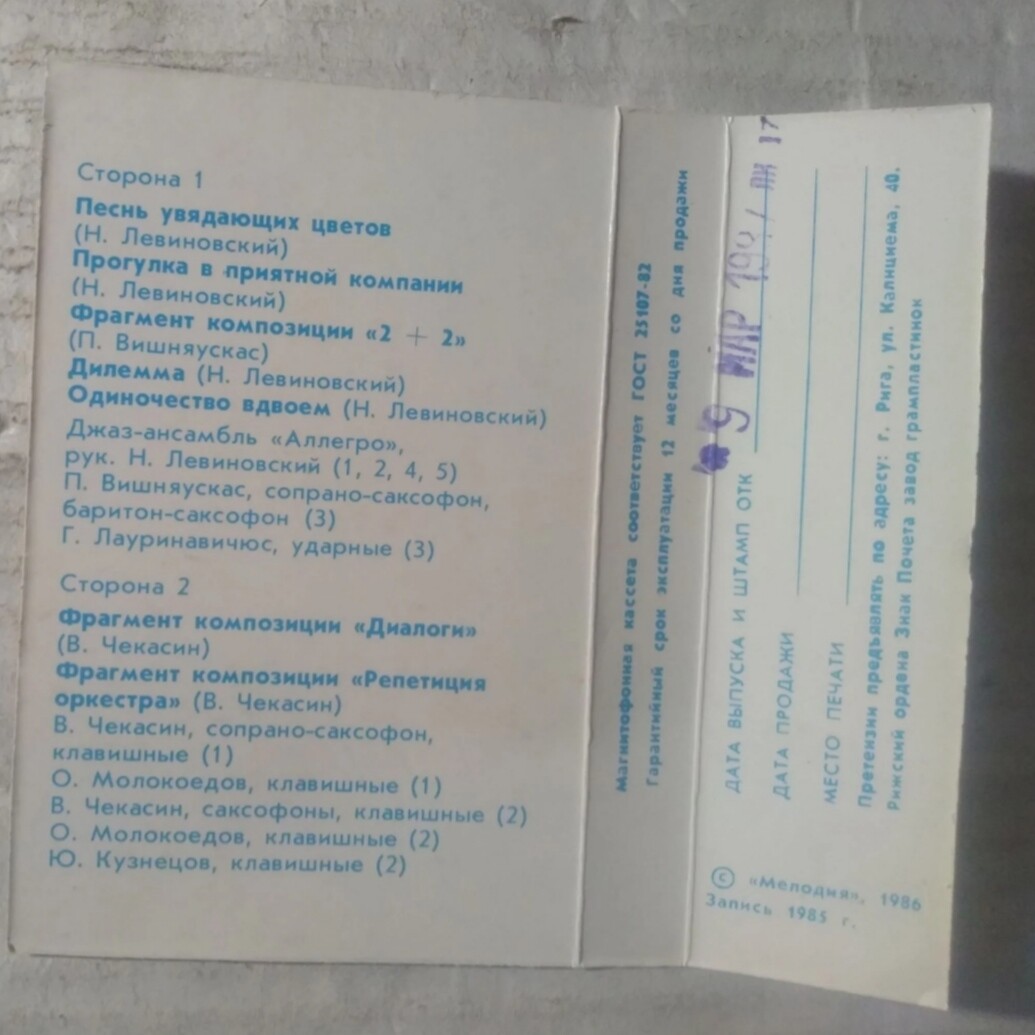 Сторона 1
Песнь увядающих цветов
(Н. Левиновский)
Прогулка в приятной компании
(Н. Левиновский)
Фрагмент композиции «2 + 2»
(П. Вишняускас)
Дилемма (Н. Левиновский)
Одиночество вдвоем (Н. Левиновский)
Джаз-ансамбль «Аллегро»,
рук. Н. Левиновский (1, 2, 4, 5)
П. Вишняускас, сопрано-саксофон,
баритон-саксофон (3)
Г. Лауринавичюс, ударные (3)
Сторона 2
Фрагмент композиции «Диалоги»
(В. Чекасин)
Фрагмент композиции «Репетиция
оркестра» (В. Чекасин)
В. Чекасин, сопрано-саксофон,
клавишные (1)
О. Молокоедов, клавишные (1)
В. Чекасин, саксофоны, клавишные (2)
О. Молокоедов, клавишные (2)
Ю. Кузнецов, клавишные (2)
Магнитофонная кассета соответствует ГОСТ 25107-82
Гарантийный срок эксплуатации 12 месяцев со дня продажи
9 МАР
ДАТА ВЫПУСКА И ШТАМП ОТК
ДАТА ПРОДАЖИ
МЕСТО ПЕЧАТИ
Претензии предъявлять по адресу: г. Рига, ул. Калнциема, 40.
Рижский ордена Знак Почета завод грампластинок
© «Мелодия», 1986
Запись 1985 г.